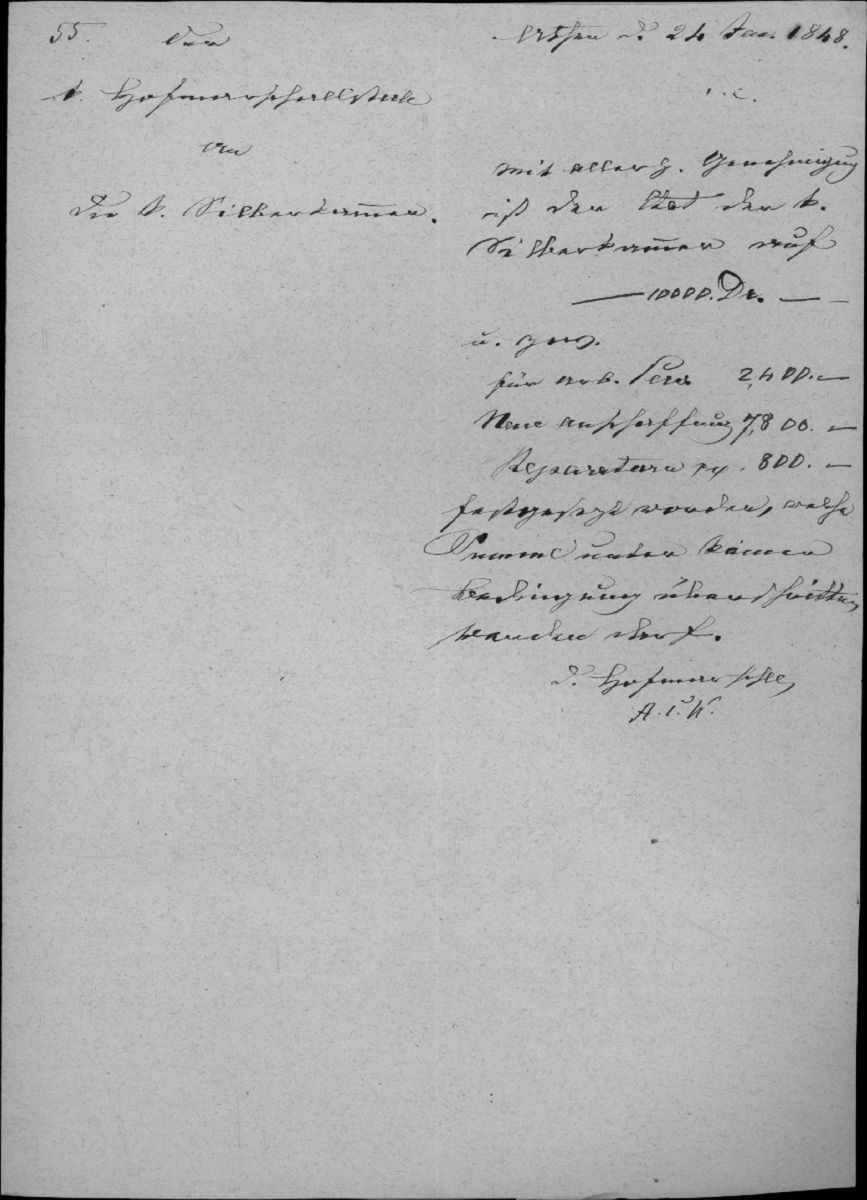 55.
Der
k. Hofmarschallstab
an
Die k. Silberkam̄er.
Athen d. 24 Jan. 1848.
Mit allerh. Genehmigung
ist der Etat der k.
Silberkam̄er auf
— 10000. Dr. —
u. zwar.
für arb. 2,400. —
Neue Anschaffung 7,800. —
Reparaturen 800. —
festgesezt worden, welche
Summe unter keiner
Bedingung überschritten
werden darf.
d. Hofmarschall